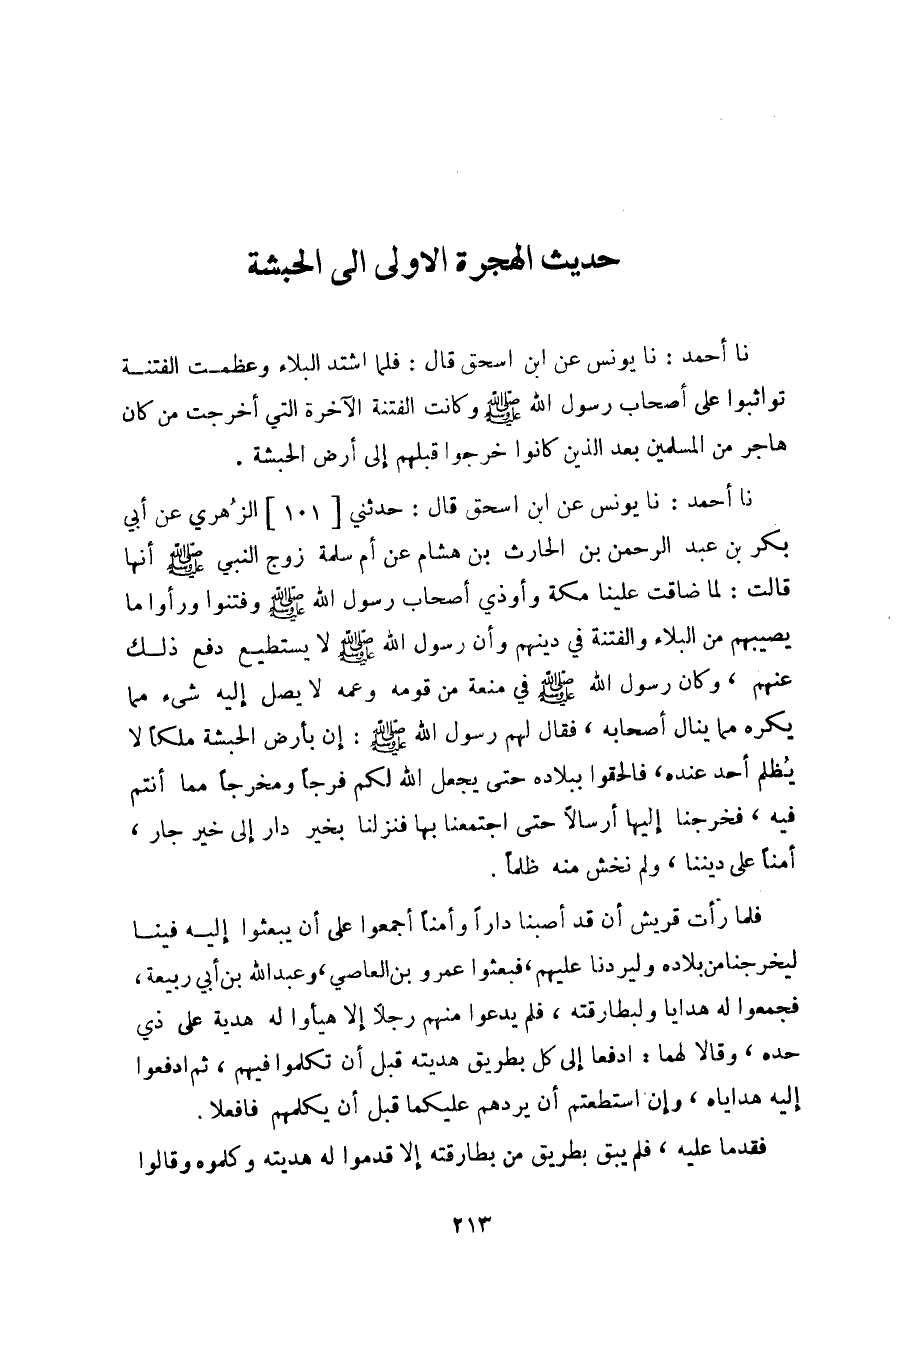 حديث الهجرة الاولى الى الحبشة
نا أحمد : نا يونس عن ابن اسحق قال : فلما اشتد البلاء وعظمت الفتنة
تواثبوا على أصحاب رسول الله ﷺ وكانت الفتنة الآخرة التي أخرجت من كان
هاجر من المسلمين بعد الذين كانوا خرجوا قبلهم إلى أرض الحبشة .
نا أحمد : نا يونس عن ابن اسحق قال : حدثني [ ١٠١ ] الزُهري عن أبي
بكر بن عبد الرحمن بن الحارث بن هشام عن أم سلمة زوج النبي ﷺ أنها
قالت : لما ضاقت علينا مكة وأوذي أصحاب رسول الله ﷺ وفتنوا ورأوا ما
يصيبهم من البلاء والفتنة في دينهم وأن رسول الله ﷺ لا يستطيع دفع ذلك
عنهم ، وكان رسول الله ﷺ في منعة من قومه وعمه لا يصل إليه شىء مما
يكره مما ينال أصحابه ، فقال لهم رسول الله ﷺ : إن بأرض الحبشة ملكاً لا
يُظلم أحد عنده، فالحقوا ببلاده حتى يجعل الله لكم فرجاً ومخرجاً مما أنتم
فيه ، فخرجنا إليها أرسالاً حتى اجتمعنا بها فنزلنا بخير دار إلى خير جار ،
أمناً على ديننا ، ولم نخش منه ظلماً .
فلما رأت قريش أن قد أصبنا داراً وأمناً أجمعوا على أن يبعثوا إليه فينا
ليخرجنا من بلاده وليردنا عليهم، فبعثوا عمرو بن العاصي، وعبدالله بن أبي ربيعة ،
فجمعوا له هدايا ولبطارقته ، فلم يدعوا منهم رجلاً إلا هيأوا له هدية على ذي
حده ، وقالا لهما : ادفعا إلى كل بطريق هديته قبل أن تكلموا فيهم ، ثم ادفعوا
إليه هداياه ، وإن استطعتم أن يردهم عليكما قبل أن يكلمهم فافعلا .
فقدما عليه ، فلم يبق بطريق من بطارقته إلا قدموا له هديته وكلموه وقالوا
٢١٣